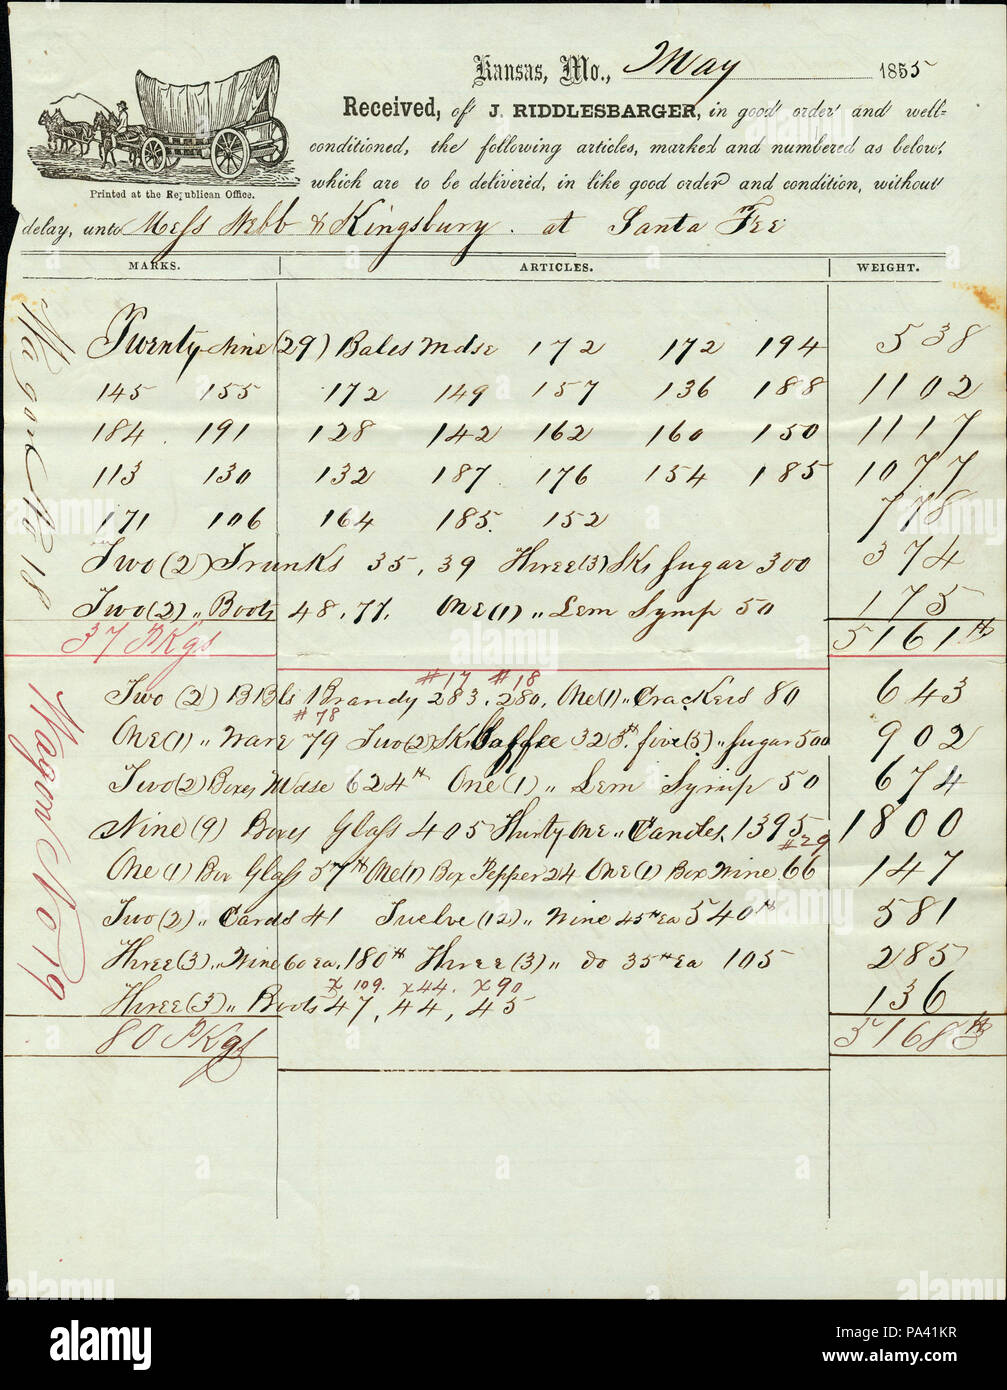 Kansas, Mo., May 1855
Received, of J. RIDDLESBARGER, in good order and well-
conditioned, the following articles, marked and numbered as below,
which are to be delivered, in like good order and condition, without
Printed at the Republican Office.
delay, unto Mess Webb & Kingsbury. at Santa Fee
MARKS. ARTICLES. WEIGHT.
Wagon No 18
Twenty-Nine (29) Bales Mdse 172 172 194 538
145 155 172 149 157 136 188 1102
184 . 191 128 142 162 160 150 1117
113 130 132 187 176 154 185 1077
171 106 164 185. 152 778
Two (2) Trunks 35, 39 Three (3) Sks Sugar 300 374
Two (2) „ Boots 48, 77. One (1) „ Lem Syrup 50 175
37 Pkgs 5161 lb
Wagon No 19
#17 #18
Two (2) BBls Brandy 283, 280, One (1) „ Crackers 80 643
#78
One (1) „ Ware 79 Two (2) Sks Coffee 323 lb. five (5) „ Sugar 500 902
Two (2) Boxes Mdse 624 lb One (1) „ Lem Syrup 50 674
Nine (9) Boxes Glass 405 Thirty One „ Candles, 1395 1800
#29
One (1) Box Glass 57 lb One (1) Box Pepper 24 One (1) Box Wine 66 147
Two (2) „ Cards 41 Twelve (12) „ Wine 45 lb Ea 540 lb 581
Three (3) „ Wine 60 ea. 180 lb Three (3) „ do 35 lb Ea 105 285
x 109. x 44. x 90
Three (3) „ Boots 47, 44, 45 136
80 Pkgs 5168 lb
alamy
www.alamy.com
Image ID: PA41KR